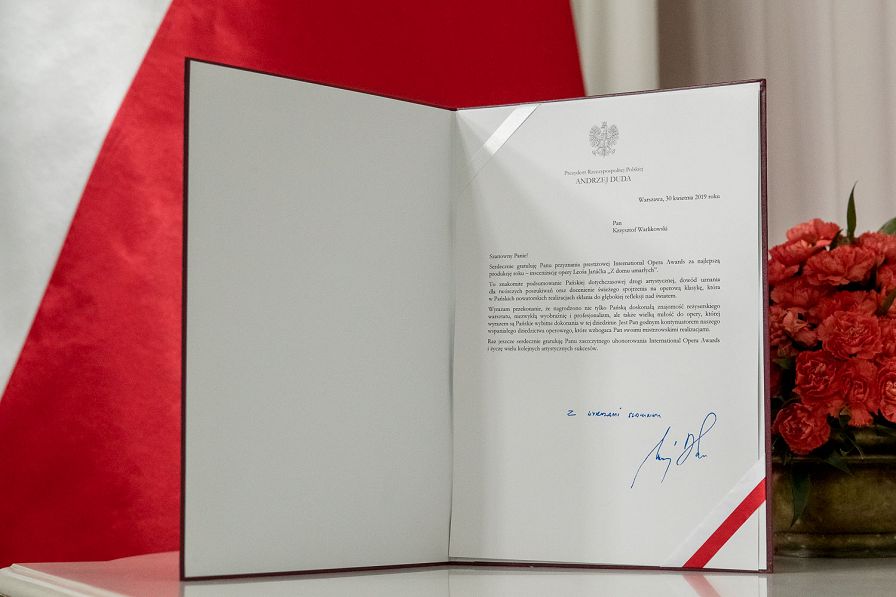 Prezydent Rzeczypospolitej Polskiej
ANDRZEJ DUDA
Warszawa, 30 kwietnia 2019 roku
Pan
Krzysztof Warlikowski
Szanowny Panie!
Serdecznie gratuluję Panu przyznania prestiżowej International Opera Awards za najlepszą
produkcję roku – inscenizację opery Leoša Janáčka „Z domu umarłych”.
To znakomite podsumowanie Pańskiej dotychczasowej drogi artystycznej, dowód uznania
dla twórczych poszukiwań oraz docenienie świeżego spojrzenia na operową klasykę, która
w Pańskich nowatorskich realizacjach skłania do głębokiej refleksji nad światem.
Wyrażam przekonanie, że nagrodzono nie tylko Pańską doskonałą znajomość reżyserskiego
warsztatu, niezwykłą wyobraźnię i profesjonalizm, ale także wielką miłość do opery, której
wyrazem są Pańskie wybitne dokonania w tej dziedzinie. Jest Pan godnym kontynuatorem naszego
wspaniałego dziedzictwa operowego, które wzbogaca Pan swoimi mistrzowskimi realizacjami.
Raz jeszcze serdecznie gratuluję Panu zaszczytnego uhonorowania International Opera Awards
i życzę wielu kolejnych artystycznych sukcesów.
Z wyrazami szacunku